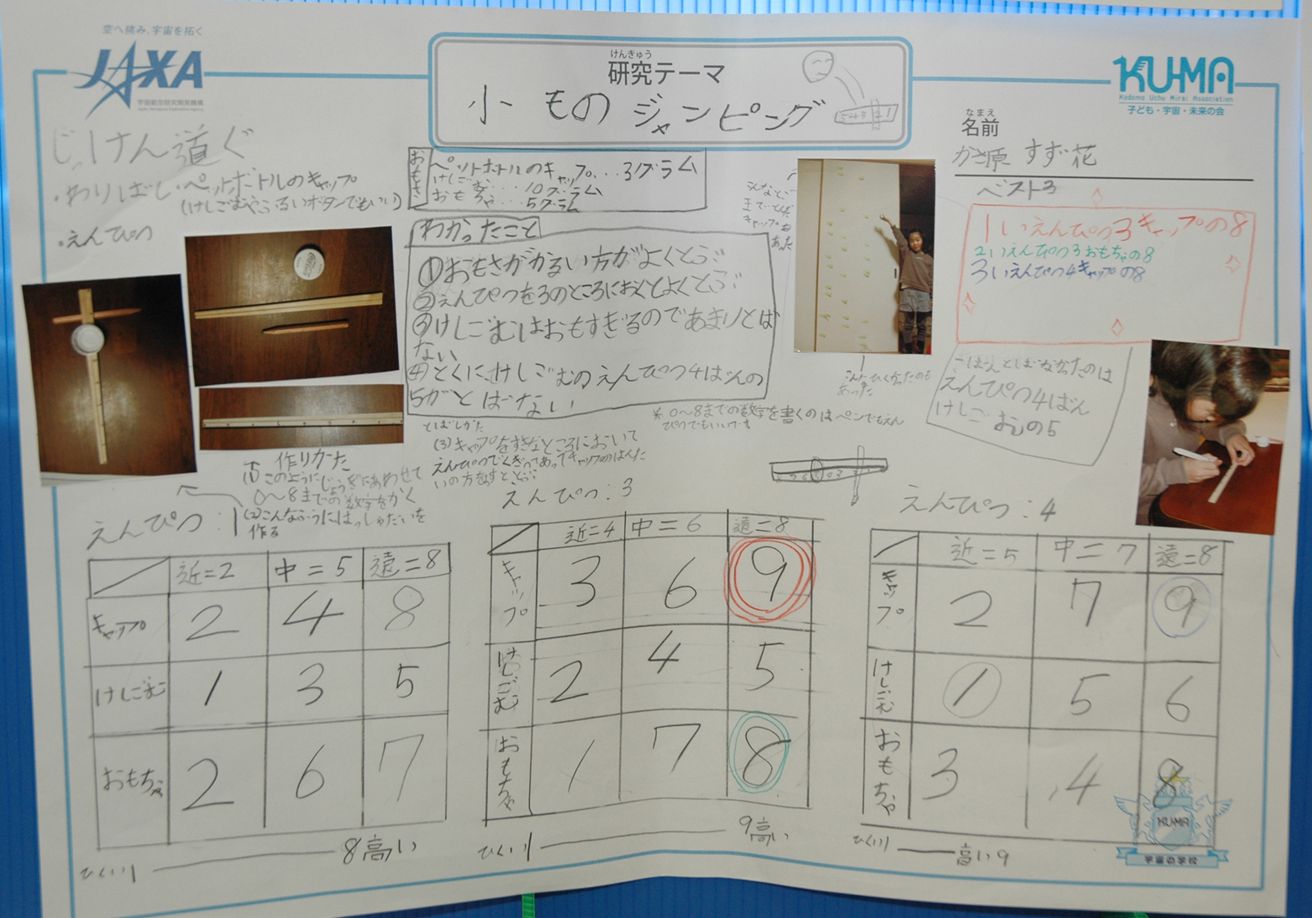 空へ挑み、宇宙を拓く
JAXA
宇宙航空研究開発機構
Japan Aerospace Exploration Agency
けんきゅう
研究テーマ
小ものジャンピング
5 4 3 2 1
KU-MA
Kodomo Uchu Mirai Association
子ども・宇宙・未来の会
なまえ
名前
かさ原 すず花
じっけん道ぐ
・わりばし・ペットボトルのキャップ
(けしごむやまるいボタンでもいい)
・えんぴつ
おもさ
ペットボトルのキャップ...3グラム
けしごむ...10グラム
おもちゃ...5グラム
わかったこと
①おもさがかるい方がよくとぶ
②えんぴつを3のところにおくとよくとぶ
③けしごむはおもすぎるのであまりとば
ない
④とくに、けしごむのえんぴつ4ばんの
5がとばない
こんなとこ
までとんだ
キャップも
あった
こんなひくかったのも
あった
ベスト3
1いえんぴつ3キャップの8
2いえんぴつ3おもちゃの8
3いえんぴつ4キャップの8
いちばんとばなかったのは
えんぴつ4ばん
けしごむの5
※0〜8までの数字を書くのはペンでもえん
ぴつでもいいです
作りかた
(1)このようにじょうぎにあわせて
0〜8までの数字をかく
(2)こんなふうにはっしゃだいを
作る
とばしかた
(3)キャップをすきなところにおいて
えんぴつでくぎってあってキャップのはんた
いの方をおすととぶ
えんぴつ:1
近=2 中=5 遠=8
キャップ 2 4 8
けしごむ 1 3 5
おもちゃ 2 6 7
ひくい1 8高い
えんぴつ:3
近=4 中=6 遠=8
キャップ 3 6 9
けしごむ 2 4 5
おもちゃ 1 7 8
ひくい1 9高い
えんぴつ:4
近=5 中=7 遠=8
キャップ 2 7 9
けしごむ 1 5 6
おもちゃ 3 4 8
ひくい1 高い9
KU-MA
宇宙の学校